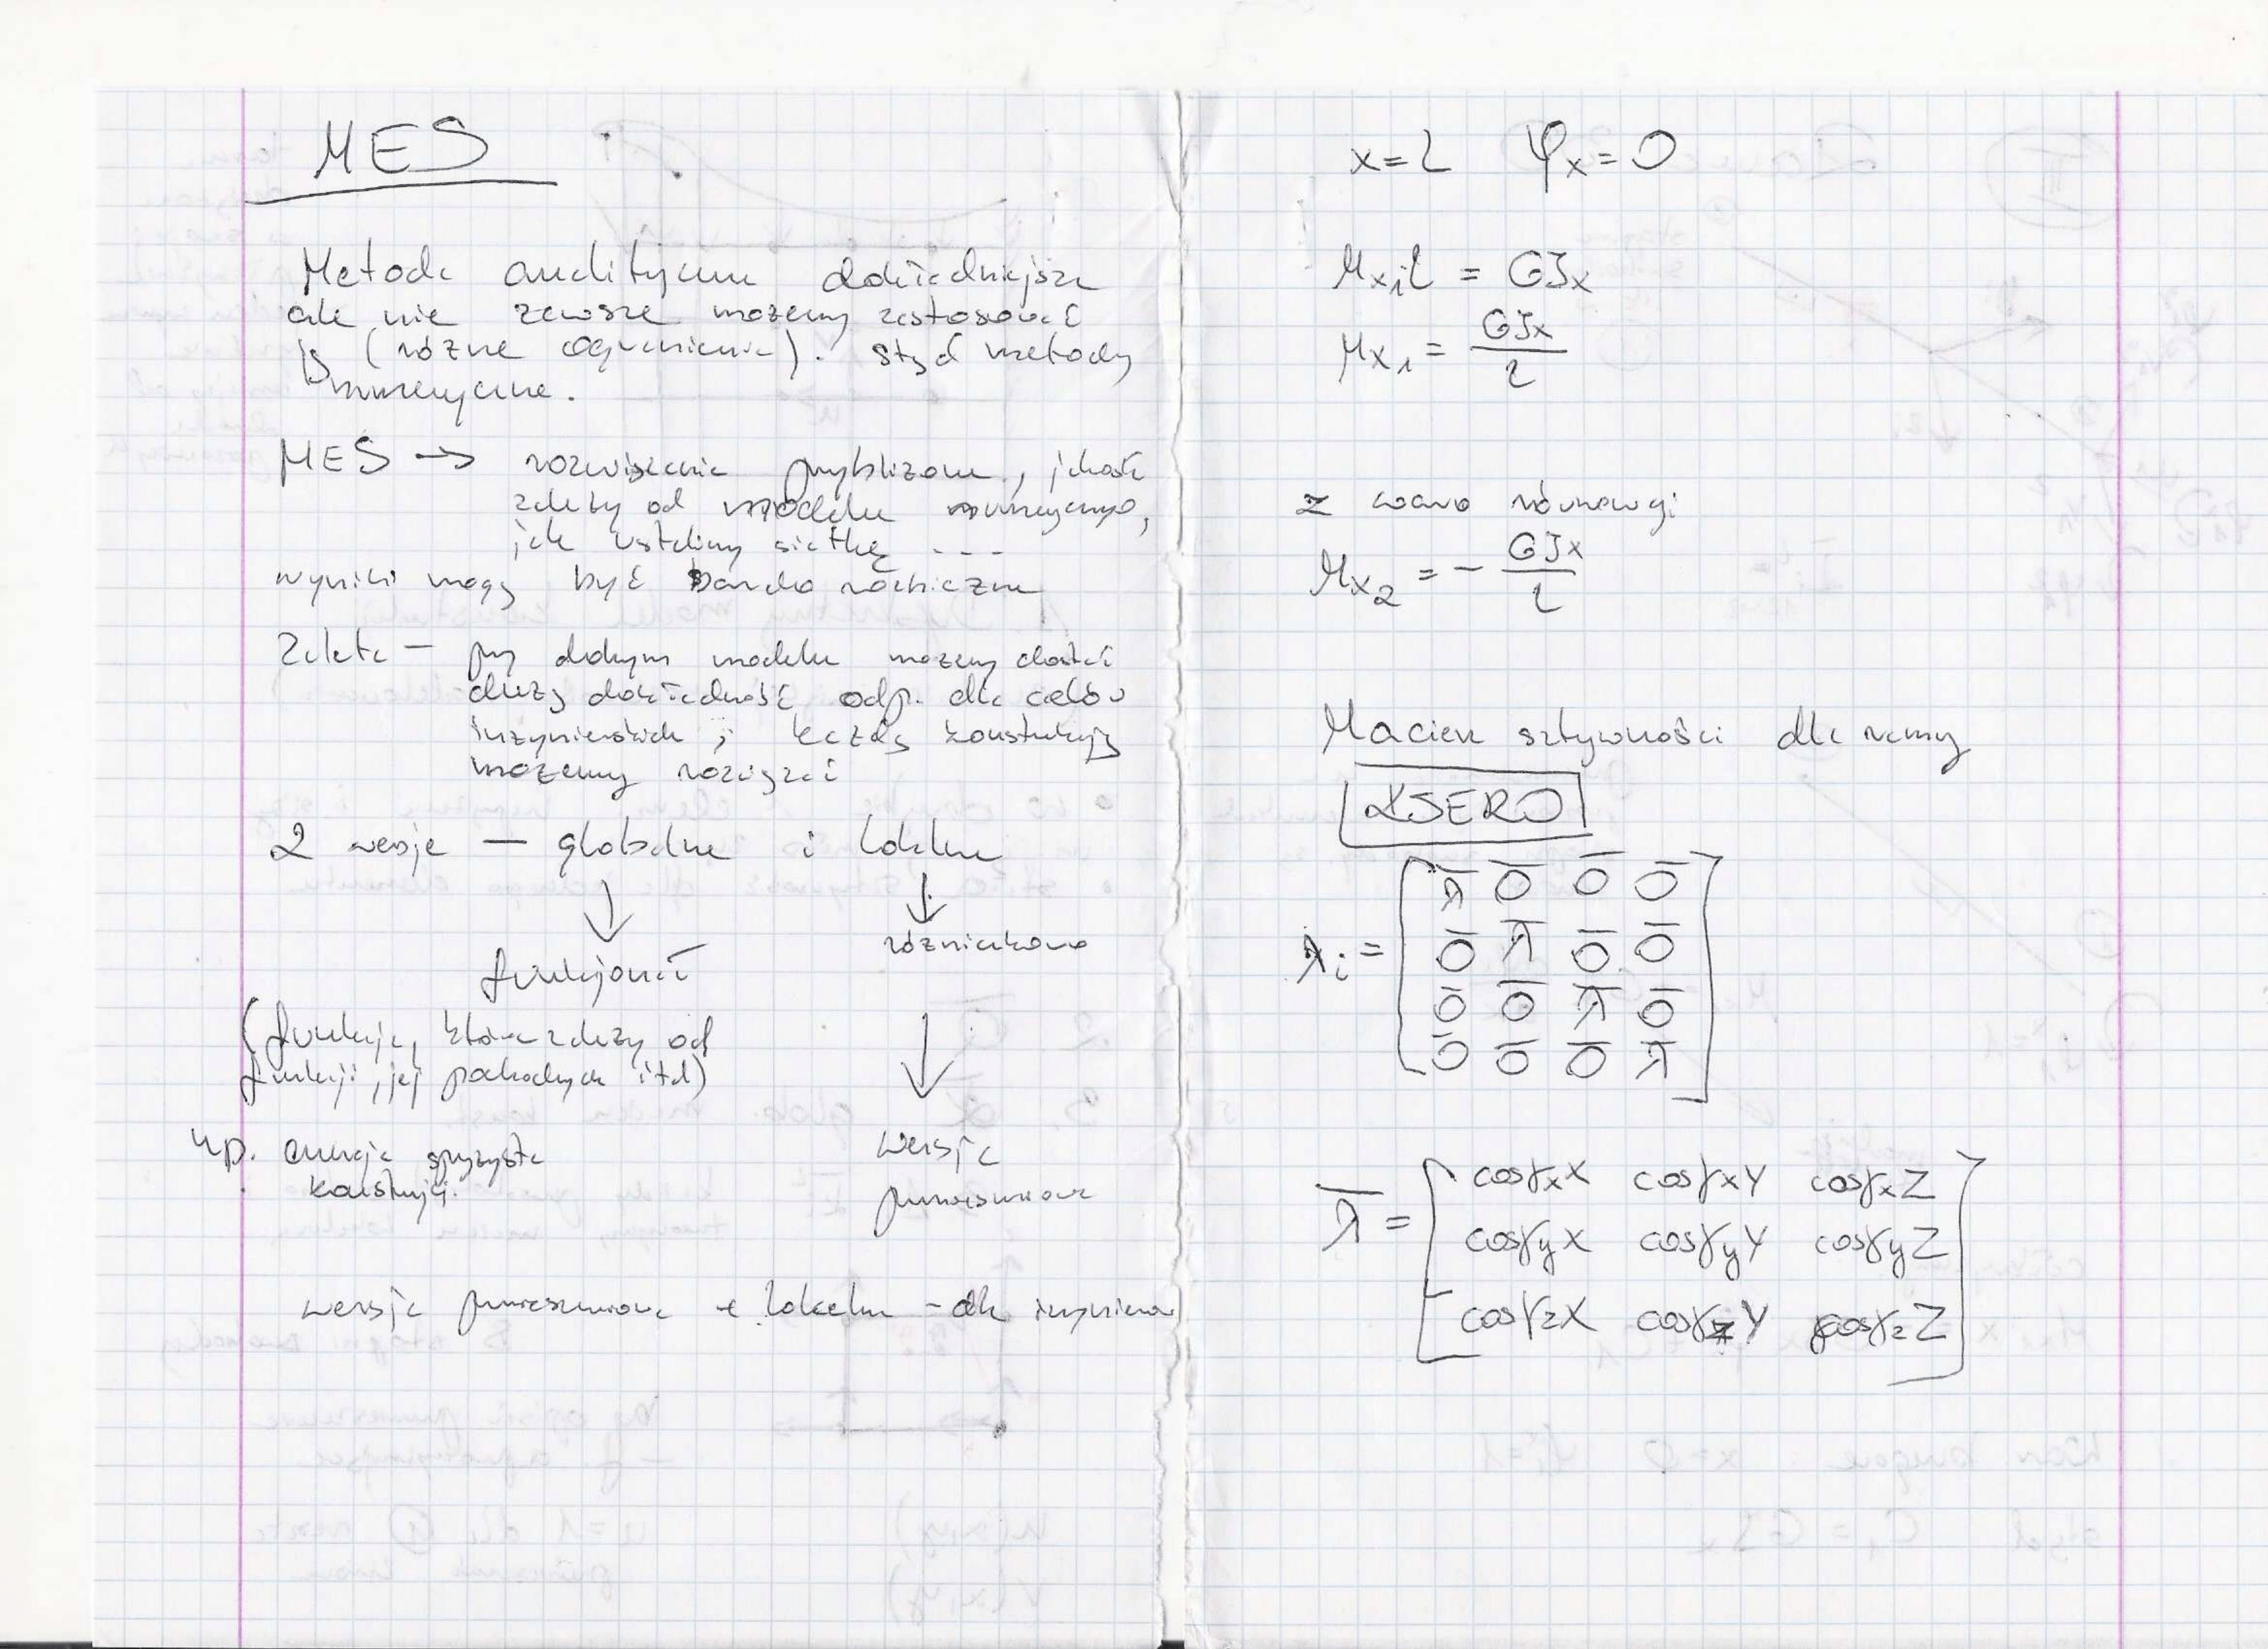 MES
Metoda analityczna dokładniejsza
ale nie zawsze możemy zastosować
(różne ograniczenia). Stąd metody
numeryczne.
MES → rozwiązanie przybliżone, jakość
zależy od modelu numerycznego,
jak ustalimy siatkę ---
wyniki mogą być bardzo rozbieżne
Zaleta — przy dobrym modelu możemy dostać
dużą dokładność odp. dla celów
inżynierskich; każdą konstrukcję
możemy rozwiązać
2 wersje — globalna i lokalna
↓ ↓
funkcjonał różniczkowa
(funkcja, która zależy od
funkcji, jej pochodnych itd)
↓
np. energia sprężysta
konstrukcji.
wersja
przemieszczeniowa
wersja przemieszczeniowa + lokalna - dla inżynierów
x=l φx=0
Mx1l = GJx
Mx1 = GJx/l
z warun równowagi
Mx2 = - GJx/l
Macierz sztywności dla ramy
XSERO
λi = [ λ̄ 0̄ 0̄ 0̄
0̄ λ̄ 0̄ 0̄
0̄ 0̄ λ̄ 0̄
0̄ 0̄ 0̄ λ̄ ]
λ̄ = [ cosγxX cosγxY cosγxZ
cosγyX cosγyY cosγyZ
cosγzX cosγzY cosγzZ ]